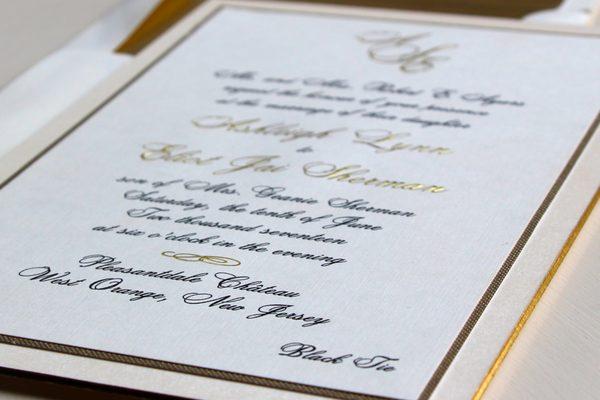 Mr. and Mrs. Robert E Ayers
request the honour of your presence
at the marriage of their daughter
Ashleigh Lynn
&
Eliot Jai Sherman
son of Mrs. Jeanie Sherman
Saturday, the tenth of June
Two thousand seventeen
at six o'clock in the evening
Pleasantdale Château
West Orange, New Jersey
Black Tie